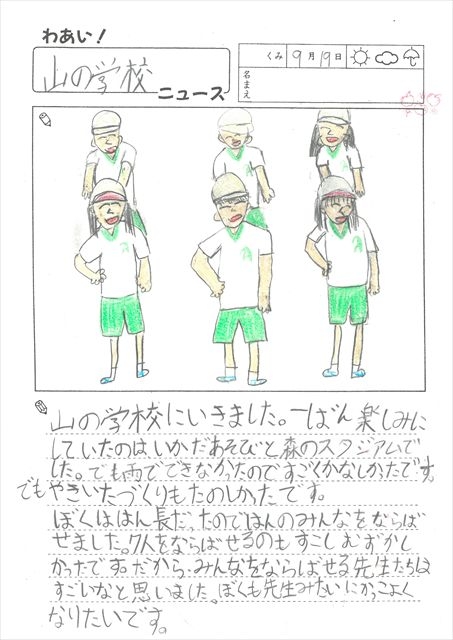 わあい！
山の学校
ニュース
くみ 9月19日
名まえ
山の学校にいきました。一ばん楽しみに
していたのはいかだあそびと森のスタジアムで
した。でも雨でできなかたのですごくかなしかったです。
でもやきいたづくりもたのしかったです。
ぼくははん長だったのではんのみんなをならば
せました。7人をならばせるのもすこしむずかし
かったです。だから、みんなをならばせる先生たちは
すごいなと思いました。ぼくも先生みたいにかっこよく
なりたいです。